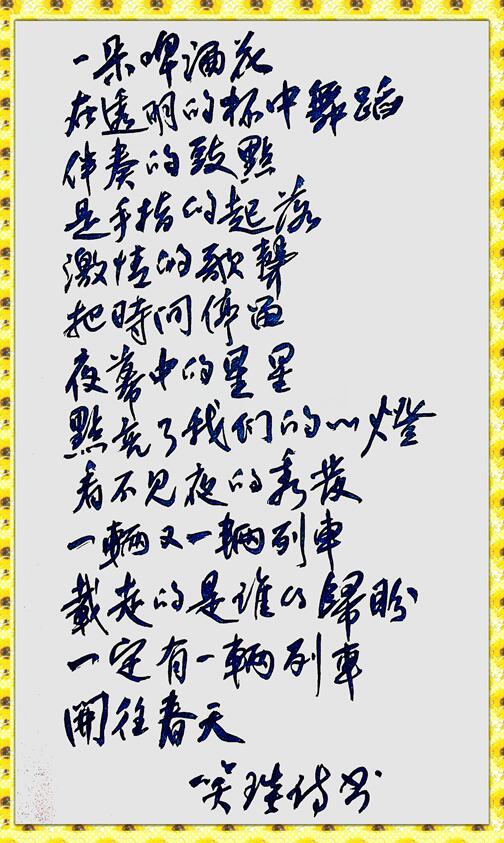 一朵啤酒花
在透明的杯中舞蹈
伴奏的鼓點
是手指的起落
激情的歌聲
把時间停留
夜幕中的星星
點亮了我们的心燈
看不见夜的秀發
一輛又一輛列車
載走的是谁的歸盼
一定有一輛列車
開往春天